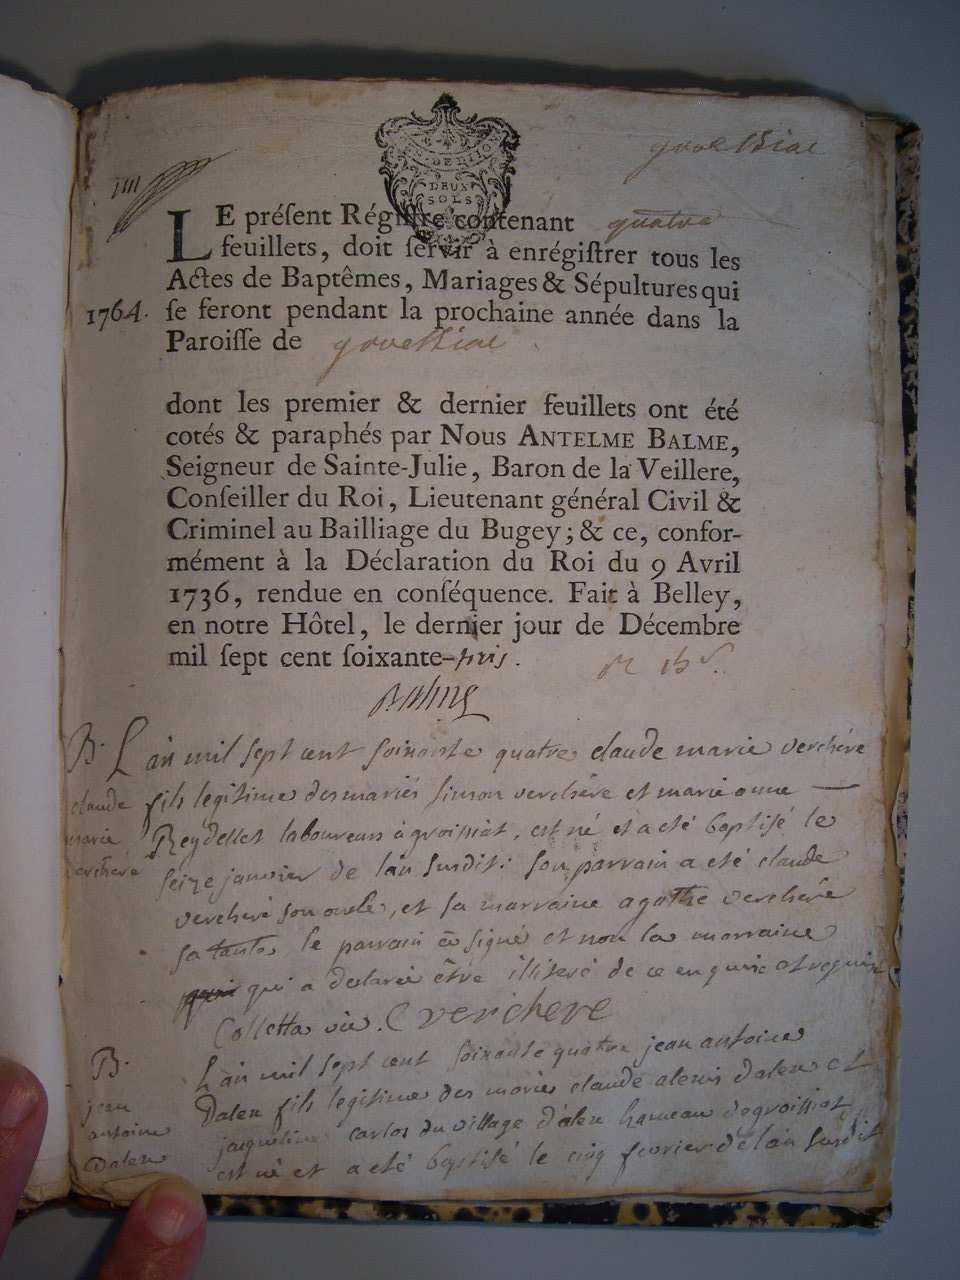 groessiac
IIII
G. DE DIJON
DEUX
SOLS
LE préſent Régiſtre contenant quatre
feuillets, doit ſervir à enrégiſtrer tous les
Actes de Baptêmes, Mariages & Sépultures qui
1764. ſe feront pendant la prochaine année dans la
Paroiſſe de groessiac.
dont les premier & dernier feuillets ont été
cotés & paraphés par Nous ANTELME BALME,
Seigneur de Sainte-Julie, Baron de la Veillere,
Conſeiller du Roi, Lieutenant général Civil &
Criminel au Bailliage du Bugey; & ce, confor-
mément à la Déclaration du Roi du 9 Avril
1736, rendue en conſéquence. Fait à Belley,
en notre Hôtel, le dernier jour de Décembre
mil ſept cent ſoixante-trois.
Balme
B. L'an mil sept cent soixante quatre claude marie verchere
claude fils legitime des mariés simon verchère et marie anne —
marie Reydellet laboureurs à groissiat, est né et a eté baptisé le
verchere seize janvier de l'an susdit: son parrain a eté claude
verchere son oncle, et sa marraine agathe verchere
sa tante le parrain a signé et non la marraine
qui a declaré être illiteré de ce enquise et requise
Colletta vic. C verchere
B. L'an mil sept cent soixante quatre jean antoine
jean Dalex fils legitime des mariés claude alexis dalex et
antoine jaqueline carlos du village d'alex hameau de groissiat
Dalex est né et a eté baptisé le cinq fevrier de l'an susdit